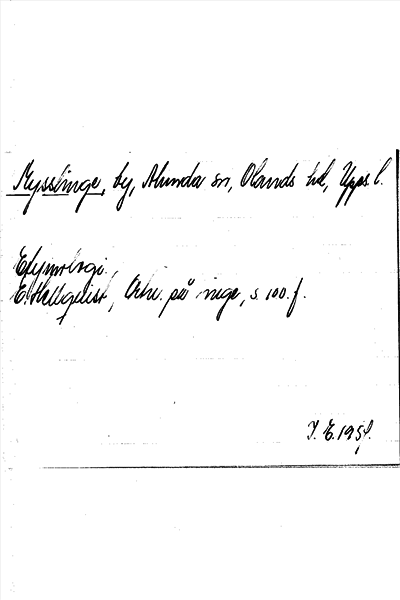 Mysslinge, by, Alunda sn, Olands hd, Upps. l.
Etymologi.
E. Hellquist, Ortn. på inge, s. 100 f.
J. E. 195